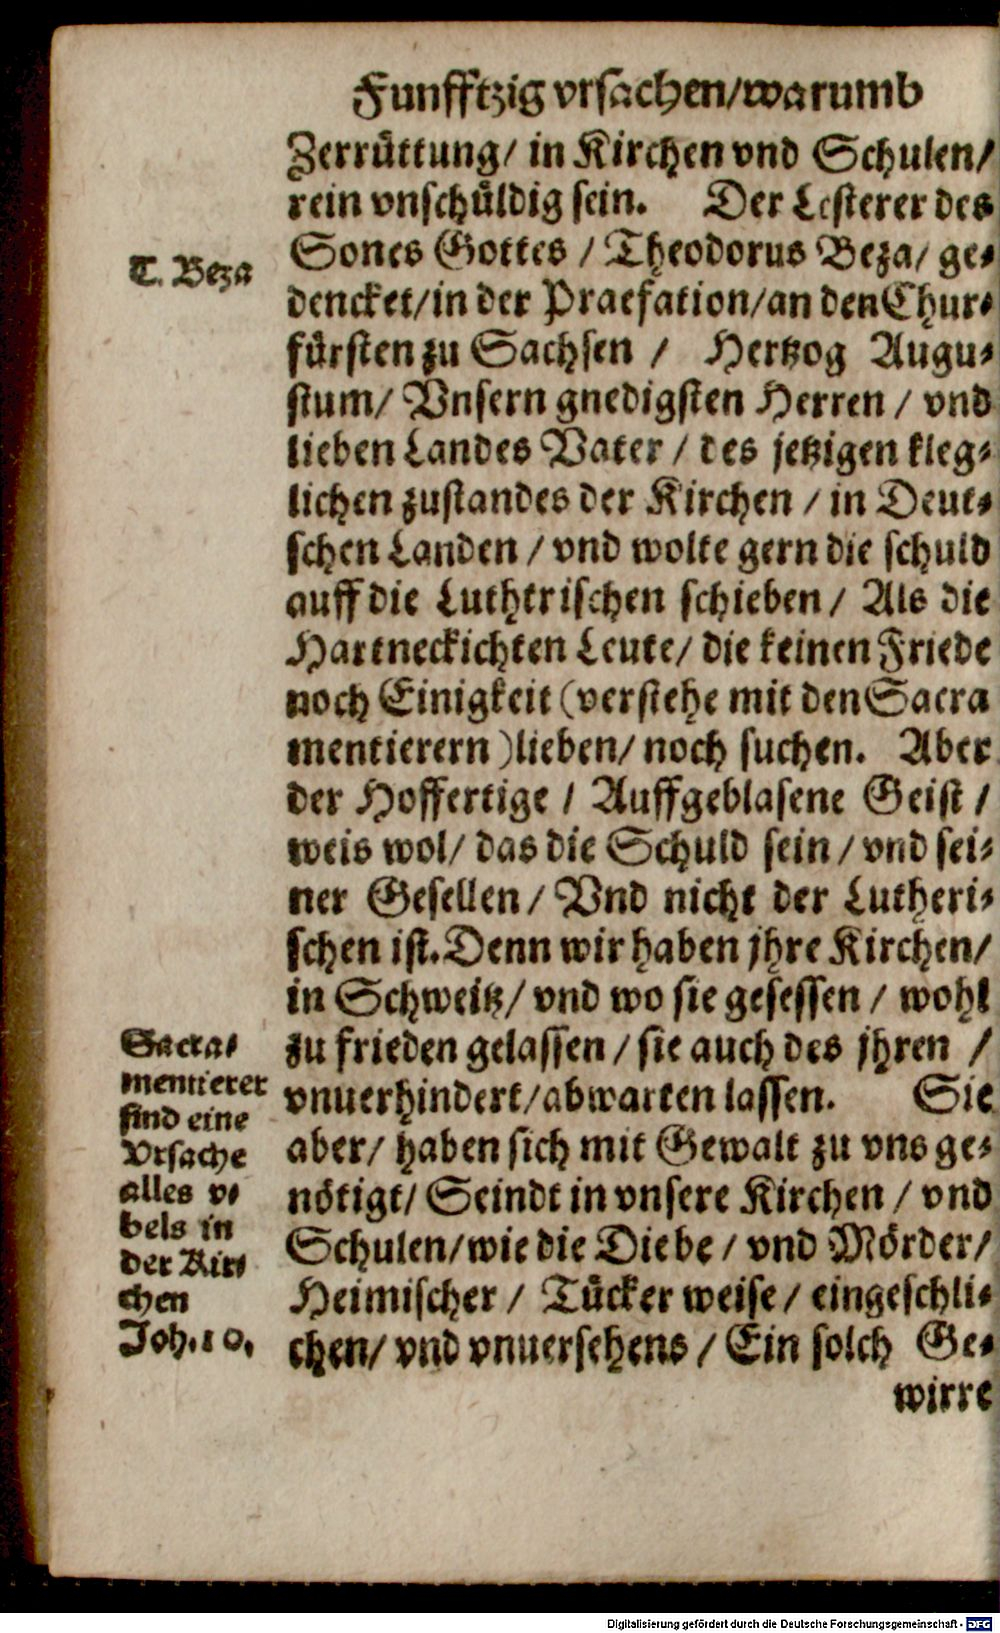 Funfftzig vrsachen/warumb
Zerrüttung/ in Kirchen vnd Schulen/
rein vnschüldig sein. Der Lesterer des
Sones Gottes / Theodorus Beza/ ge-
T. Beza
dencket/in der Praefation/an den Chur-
fürsten zu Sachsen / Hertzog Augu-
stum/ Vnsern gnedigsten Herren / vnd
lieben Landes Vater / des jetzigen kleg-
lichen zustandes der Kirchen / in Deut-
schen Landen / vnd wolte gern die schuld
auff die Luthtrischen schieben/ Als die
Hartneckichten Leute/ die keinen Friede
noch Einigkeit (verstehe mit den Sacra
mentierern )lieben/ noch suchen. Aber
der Hoffertige / Auffgeblasene Geist /
weis wol/ das die Schuld sein / vnd sei-
ner Gesellen/ Vnd nicht der Lutheri-
schen ist. Denn wir haben jhre Kirchen/
in Schweitz/ vnd wo sie gesessen / wohl
zu frieden gelassen / sie auch des jhren /
vnuerhindert/abwarten lassen. Sie
aber/ haben sich mit Gewalt zu vns ge-
nötigt/ Seindt in vnsere Kirchen / vnd
Schulen/wie die Diebe / vnd Mörder/
Heimischer / Tücker weise / eingeschli-
chen/ vnd vnuersehens / Ein solch Ge-
Sacra-
mentierer
sind eine
Vrsache
alles v-
bels in
der Kir-
chen
Joh.10.
wirre
Digitalisierung gefördert durch die Deutsche Forschungsgemeinschaft - DFG